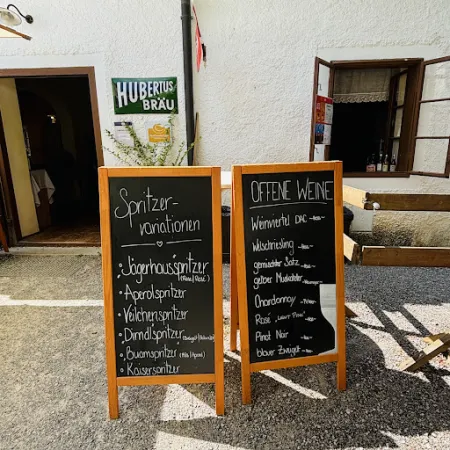 HUBERTUS
BRÄU
Spritzer-
variationen
Jägerhausspritzer
Aperolspritzer
Veilchenspritzer
Dirndlspritzer
Buamspritzer
Kaiserspritzer
OFFENE WEINE
Weinviertel DAC
Welschriesling
gemischter Satz
gelber Muskateller
Chardonnay
Rosé
Pinot Noir
blauer Zweigelt